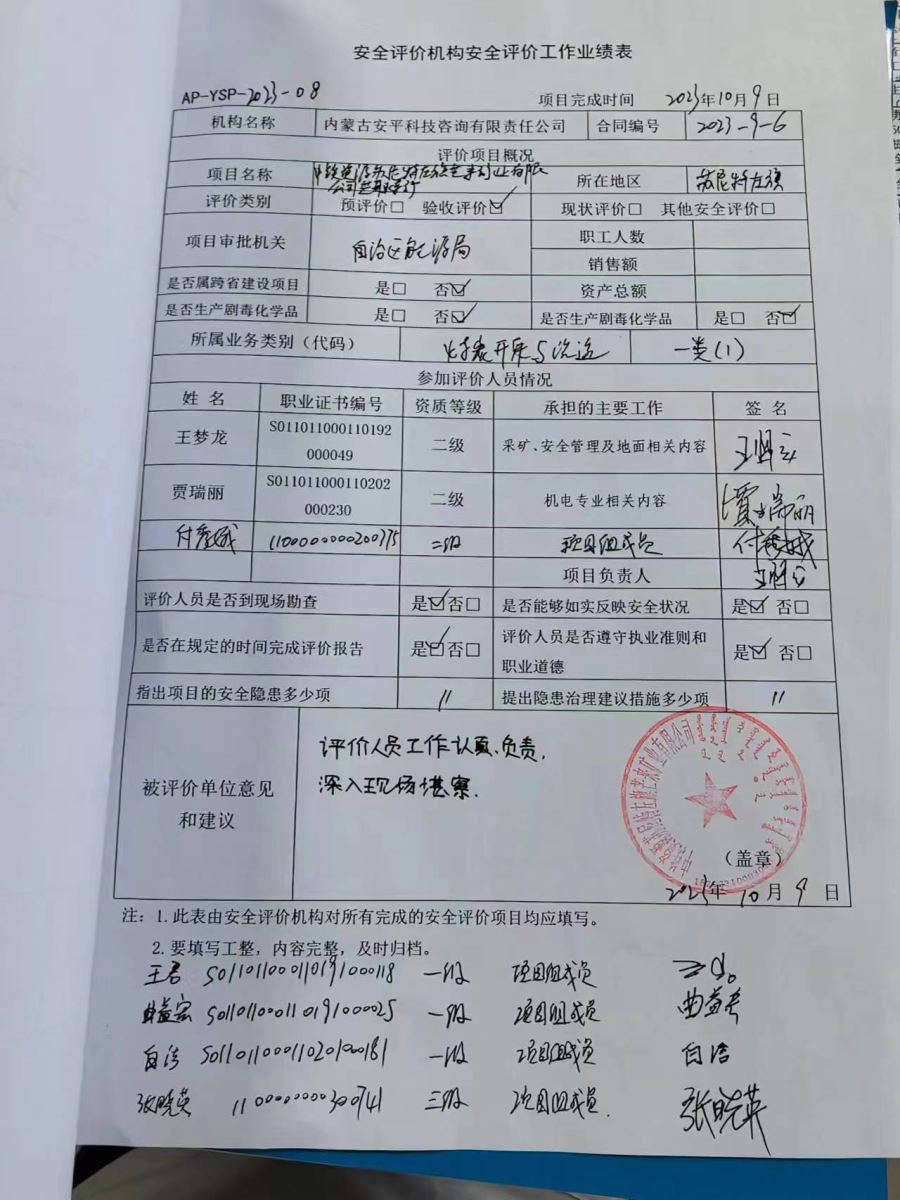 安全评价机构安全评价工作业绩表
AP-YSP-2023-08 项目完成时间 2023年10月9日
机构名称 内蒙古安平科技咨询有限责任公司 合同编号 2023-9-6
评价项目概况
项目名称 苏尼特左旗芒来矿业有限 所在地区 苏尼特左旗
公司芒来
评价类别 预评价□ 验收评价☑ 现状评价□ 其他安全评价□
项目审批机关 自治区能源局 职工人数
销售额
是否属跨省建设项目 是□ 否☑ 资产总额
是否生产剧毒化学品 是□ 否☑ 是否生产剧毒化学品 是□ 否☑
所属业务类别（代码） 煤炭开采与洗选 一类(1)
参加评价人员情况
姓名 职业证书编号 资质等级 承担的主要工作 签名
王梦龙 S011011000110192000049 二级 采矿、安全管理及地面相关内容
贾瑞丽 S011011000110202000230 二级 机电专业相关内容 贾瑞丽
付秀娥 1100000000200375 二级 项目组成员 付秀娥
项目负责人
评价人员是否到现场勘查 是☑否□ 是否能够如实反映安全状况 是☑ 否□
是否在规定的时间完成评价报告 是☑否□ 评价人员是否遵守执业准则和职业道德 是☑ 否□
指出项目的安全隐患多少项 11 提出隐患治理建议措施多少项 11
被评价单位意见和建议
评价人员工作认真、负责,
深入现场堪察.
（盖章）
2023年10月9日
注：1.此表由安全评价机构对所有完成的安全评价项目均应填写。
2.要填写工整，内容完整，及时归档。
王君 S011011000110191000118 一级 项目组成员
曲益宏 S011011000110191000025 一级 项目组成员
白洁 S011011000110201000181 一级 项目组成员 白洁
张晓英 1100000000300741 三级 项目组成员. 张晓英